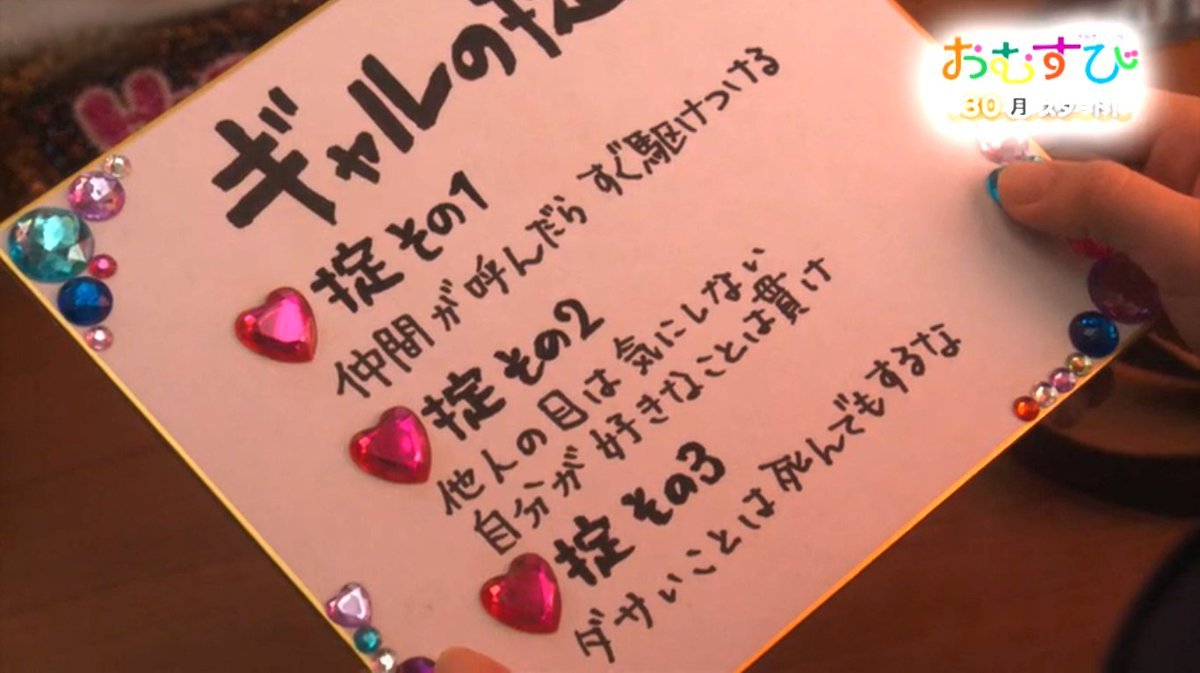 ギャルの掟
掟その1
仲間が呼んだら すぐ駆けつける
掟その2
他人の目は気にしない
自分が好きなことは貫け
掟その3
ダサいことは死んでもするな
おむすび
30月スタート!